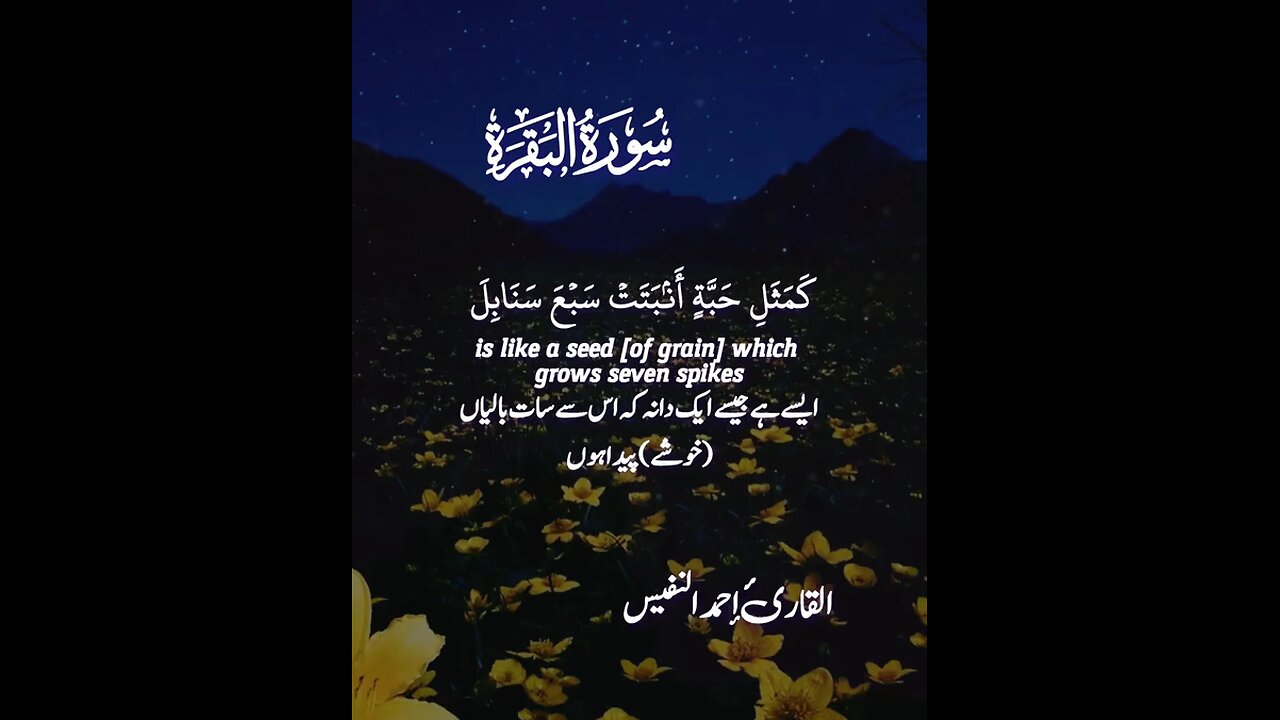 سُورَةُ الْبَقَرَةِ
كَمَثَلِ حَبَّةٍ أَنۢبَتَتۡ سَبۡعَ سَنَابِلَ
is like a seed [of grain] which
grows seven spikes
ایسے ہے جیسے ایک دانہ کہ اس سے سات بالیاں
(خوشے) پیدا ہوں
القارئ إحمد النفیس